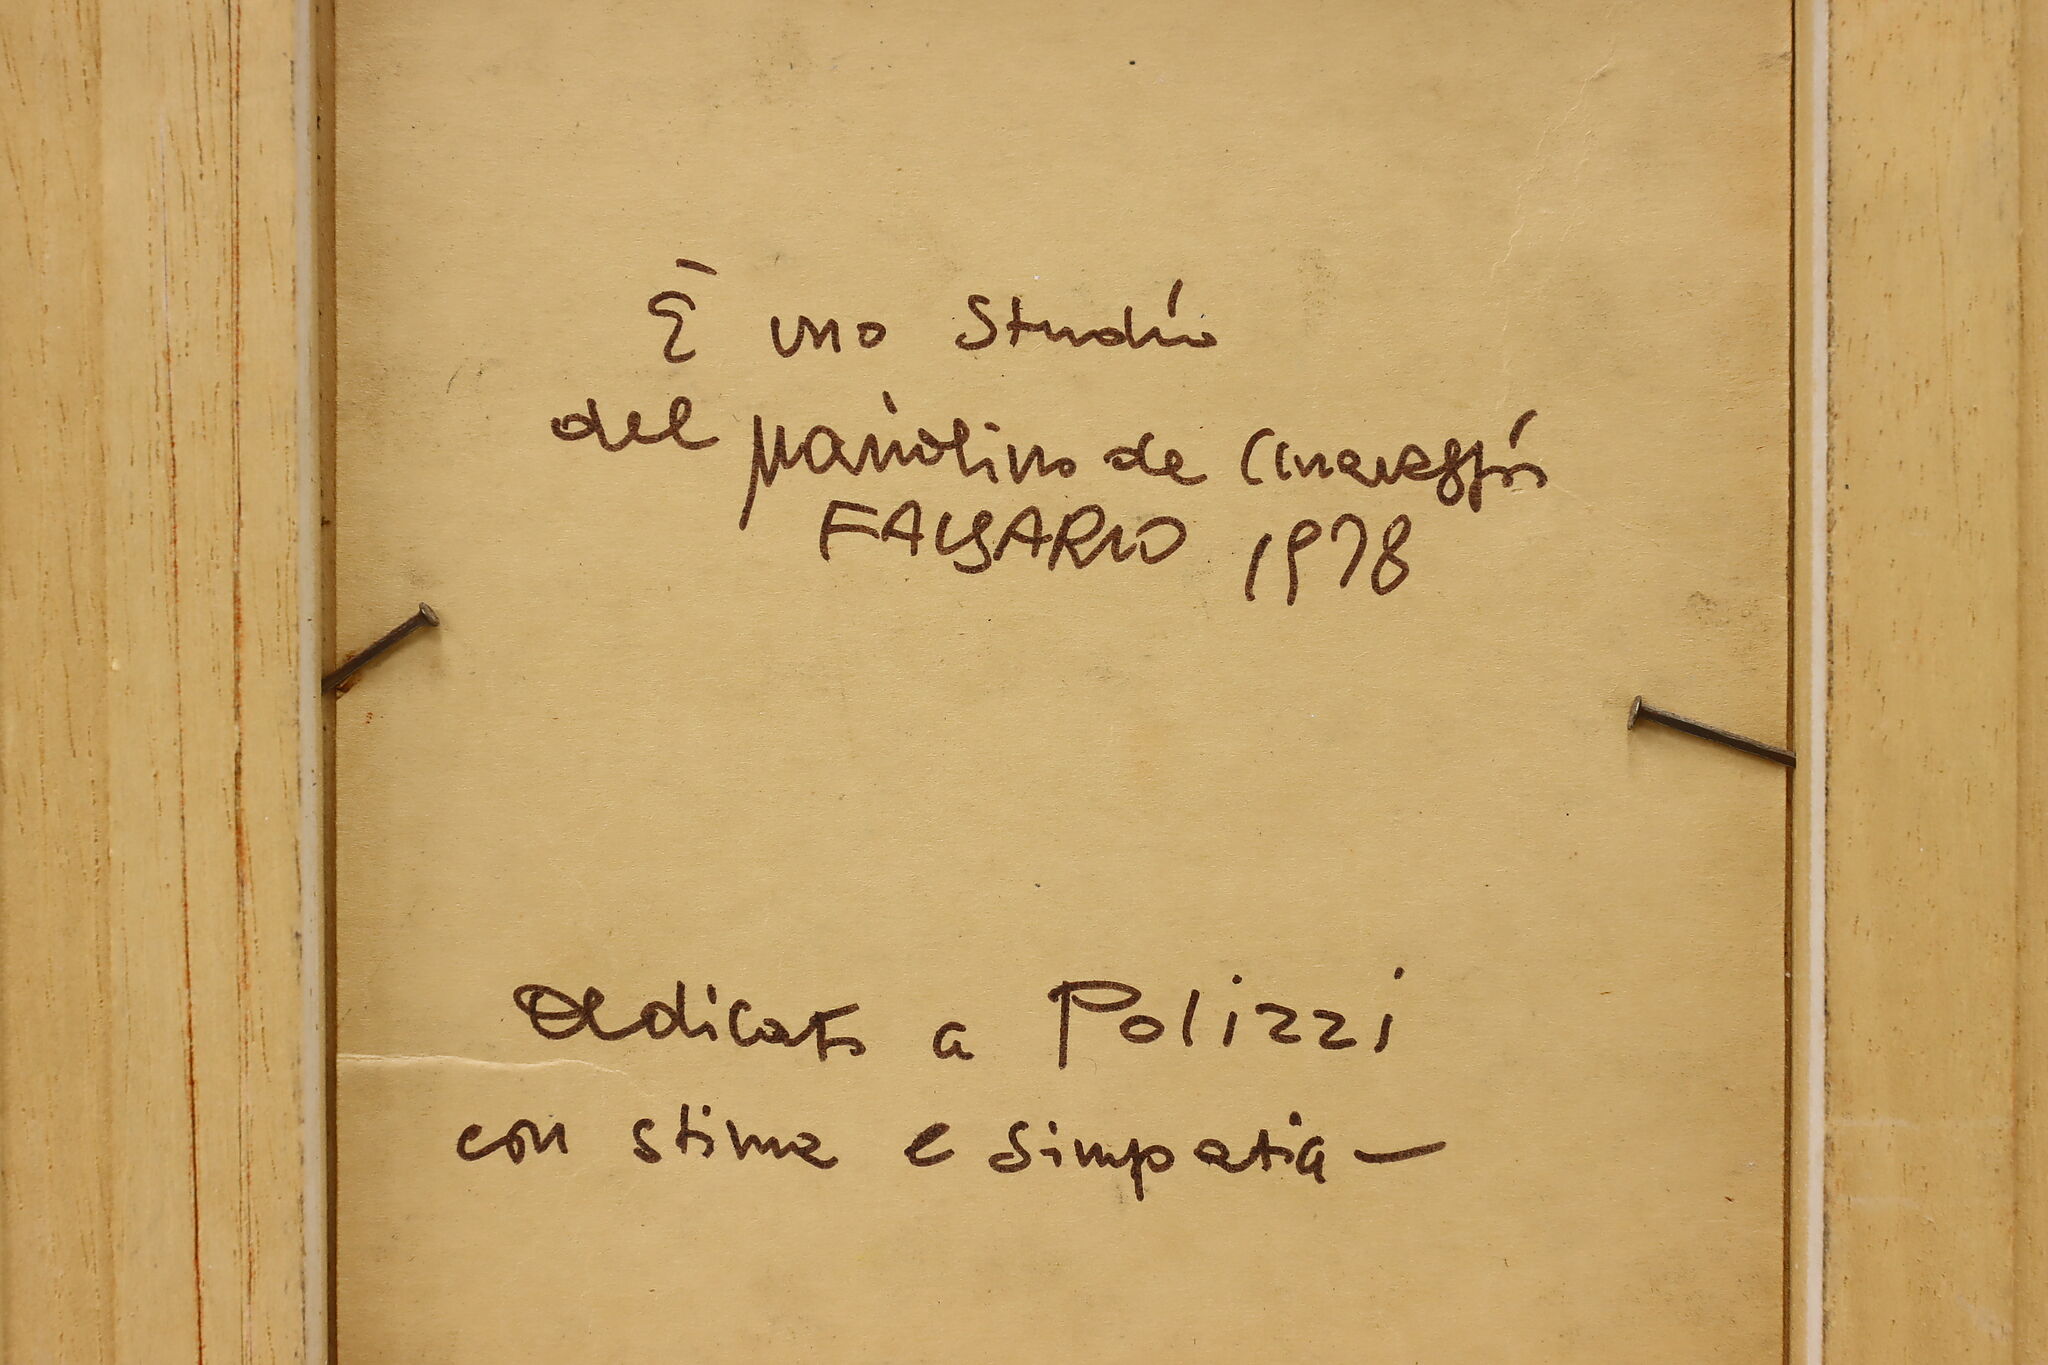 È uno studio
del mandolino de Caravaggio
FALSARIO 1978
Dedicato a Polizzi
con stima e simpatia —